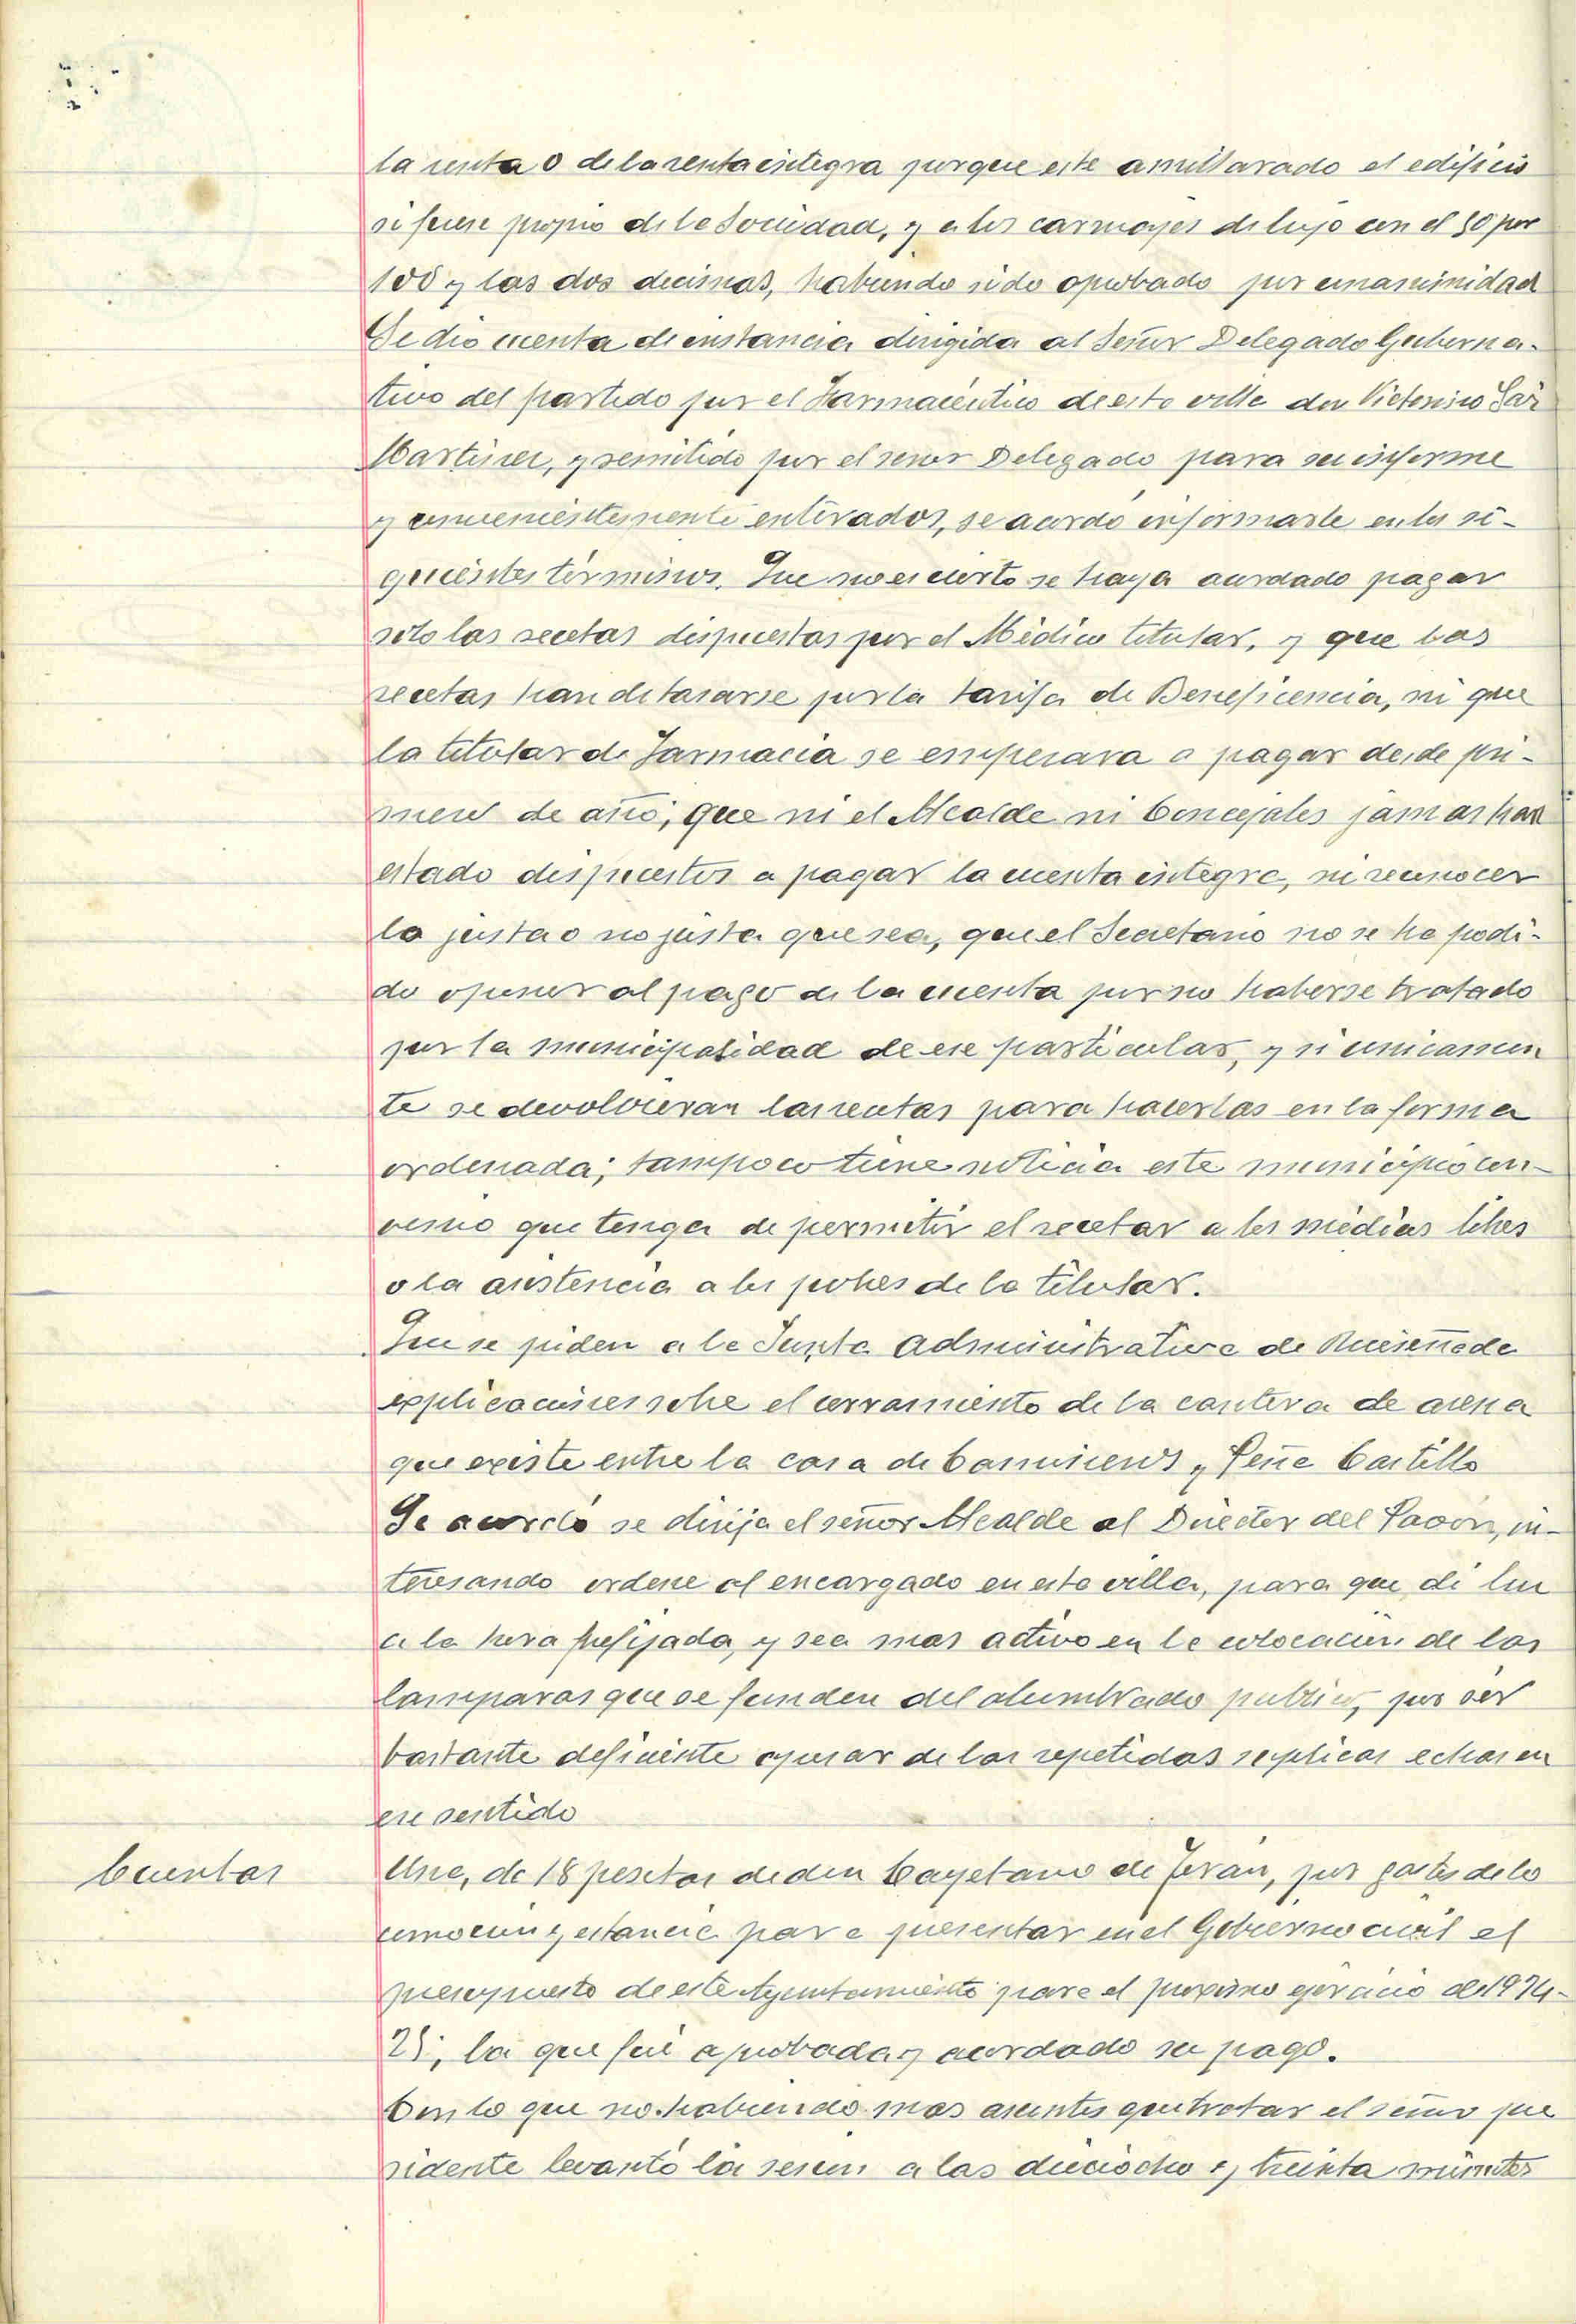 la renta o de la renta integra porque este amillarado el edificio
si fuese propio de la Sociedad, y a los carruajes de lujo con el 50 por
100 y las dos decimas, habiendo sido aprobado por unanimidad
Se dio cuenta de instancia dirigida al Señor Delegado Guberna-
tivo del partido por el Farmacéutico de esta villa don Victorino
Martinez, y remitido por el señor Delegado para su informe
y convenientemente enterados, se acordó informarle en los si-
guientes términos. Que no es cierto se haya acordado pagar
solo las recetas dispuestas por el Médico titular, y que las
recetas han de tasarse por la tarifa de Beneficencia, ni que
la titular de Farmacia se empezara a pagar desde pri-
mero de año; que ni el Alcalde ni Concejales jamas han
estado dispuestos a pagar la cuenta integra, ni reconocer
la justa o no justa que sea, que el Secretario no se ha podi-
do oponer al pago de la cuenta por no haberse tratado
por la municipalidad de ese particular, y si unicamen
te se devolvieran las recetas para hacerlas en la forma
ordenada; tampoco tiene noticia este municipio con-
venio que tenga de permitir el recetar a los médicos libres
o la asistencia a los pobres de la titular.
Que se piden a la Junta Administrativa de
explicaciones sobre el cerramiento de la cantera de arena
que existe entre la casa de Camineros y Peña Castillo
Se acordó se dirija el señor Alcalde al Director del in-
teresando ordene al encargado en esta villa, para que dé luz
a la hora prefijada, y sea mas activo en la colocación de las
lamparas que se funden del alumbrado publico, por ser
bastante deficiente apesar de las repetidas suplicas echas en
ese sentido
Cuentas
Una, de 18 pesetas de don Cayetano de Terán, por gastos de lo
comocion y estancia para presentar en el Gobierno civil el
presupuesto de este Ayuntamiento para el proximo ejercicio de 1924-
25, la que fué aprobada y acordado su pago.
Con lo que no habiendo mas asuntos que tratar el señor pre
sidente levantó la sesion a las dieciocho y treinta minutos